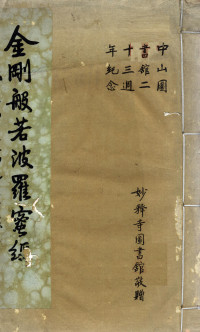 中山圖
書館二
十三週
年紀念
妙釋寺圖書館敬贈
金剛般若波羅蜜經